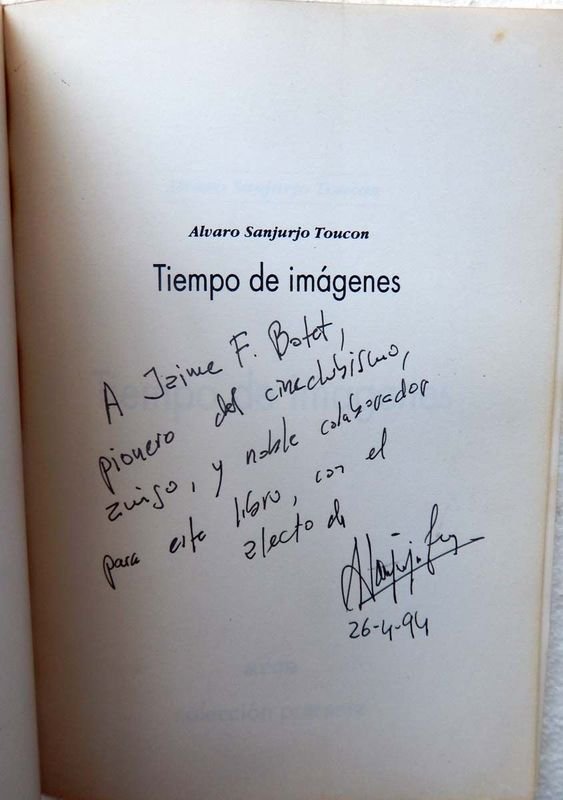 Alvaro Sanjurjo Toucon
Tiempo de imágenes
A Jaime F. Botet,
pionero del cineclubismo,
amigo, y noble colaborador
para este libro, con el
afecto de
26-4-94